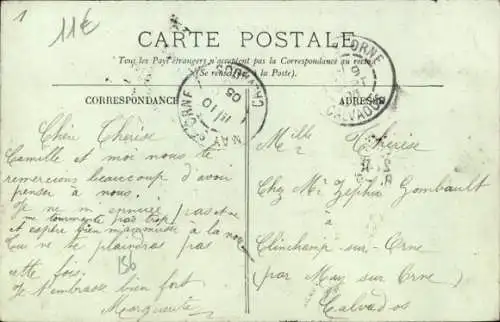 1
11€
CARTE POSTALE
Tous les Pays étrangers n'acceptent pas la Correspondance au recto
(Se renseigner à la Poste).
CORRESPONDANCE
ADRESSE
MAY S ORNE
CALVADOS
11/10
05
ORNE
CALVADOS
Chère Thérèse
Camille et moi nous te
remercions beaucoup d'avoir
penser à nous.
Je ne m'ennuie pas et ne
me tourmente pas trop
et espère bien m'amuser à la noce
Tu ne te plaindras pas
cette fois.
Je t'embrasse bien fort
Marguerite
156
Mlle Thérèse
Chez Mr Zéphir Gombault
à
Clinchamp-sur-Orne
(par May sur Orne)
Calvados